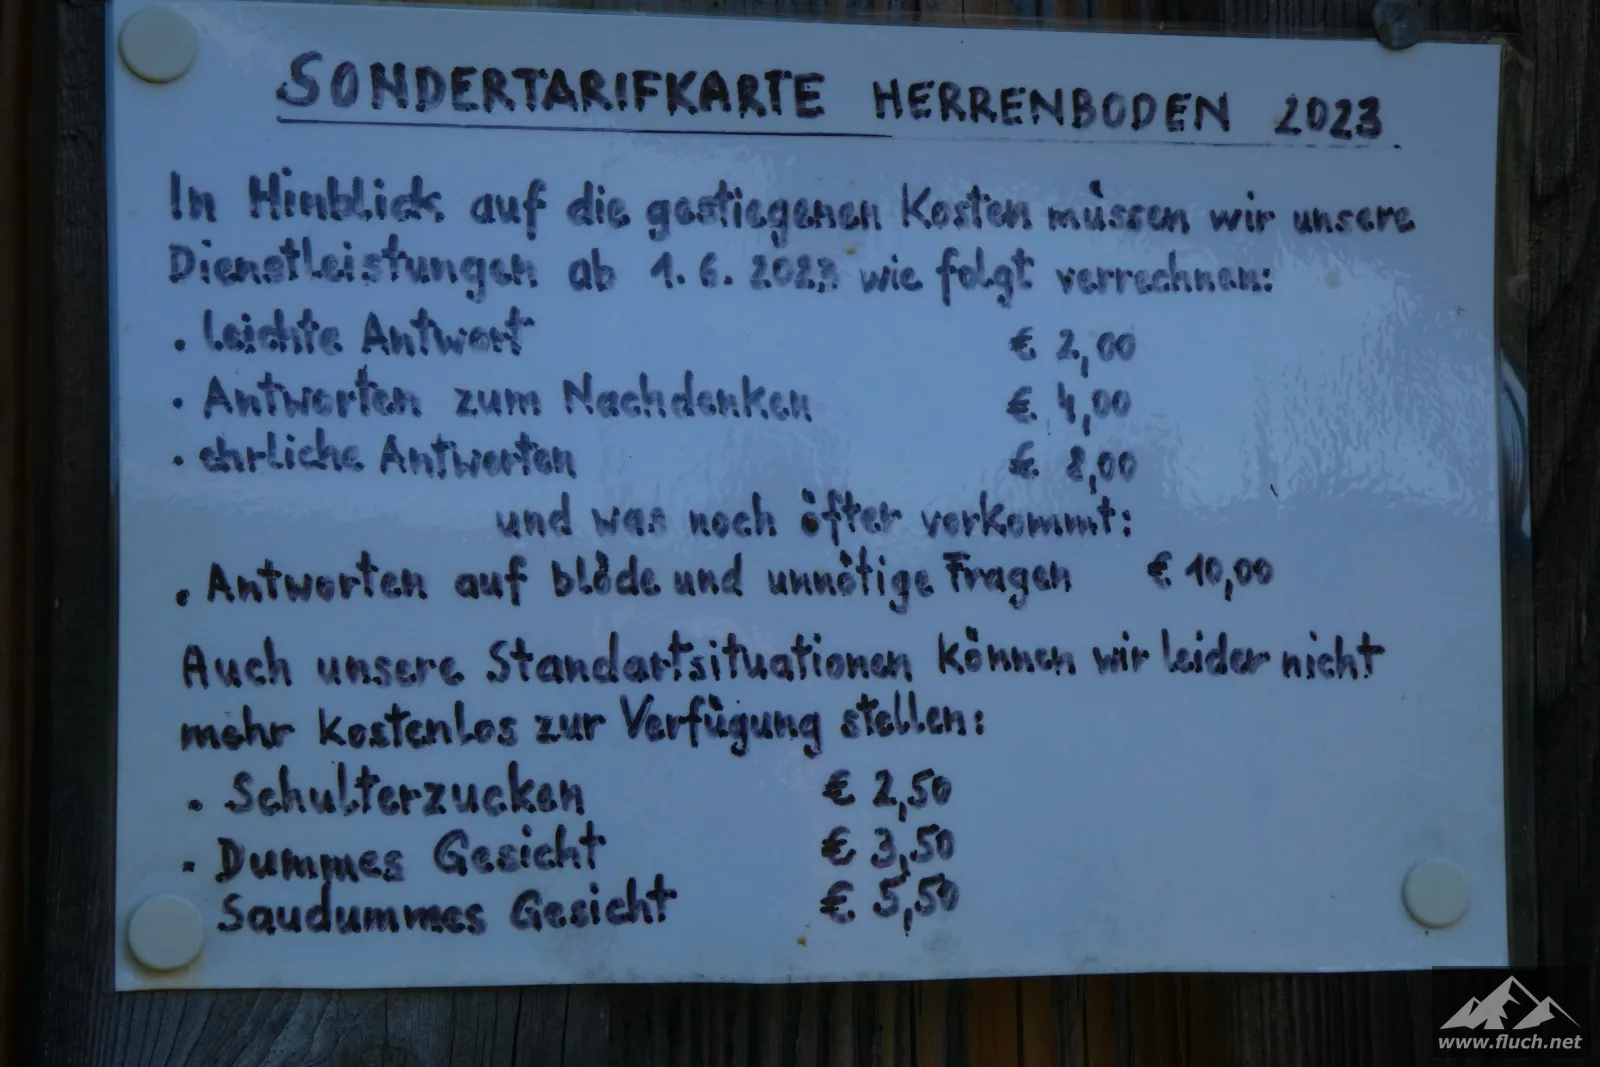 SONDERTARIFKARTE HERRENBODEN 2023
In Hinblick auf die gestiegenen Kosten müssen wir unsere
Dienstleistungen ab 1.6.2023 wie folgt verrechnen:
. leichte Antwort € 2,00
. Antworten zum Nachdenken € 4,00
. ehrliche Antworten € 8,00
und was noch öfter vorkommt:
. Antworten auf blöde und unnötige Fragen € 10,00
Auch unsere Standartsituationen können wir leider nicht
mehr kostenlos zur Verfügung stellen:
. Schulterzucken € 2,50
. Dummes Gesicht € 3,50
Saudummes Gesicht € 5,50
www.fluch.net